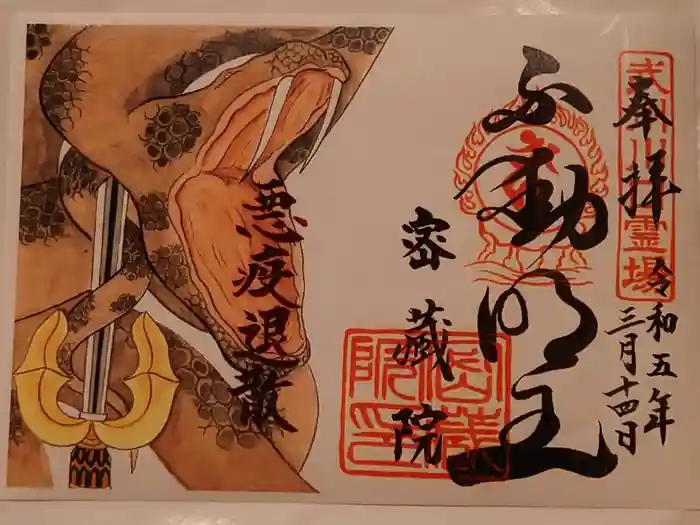 奉拝
令和五年
三月十四日
不動明王
密藏院
密蔵院印
悪疫退散